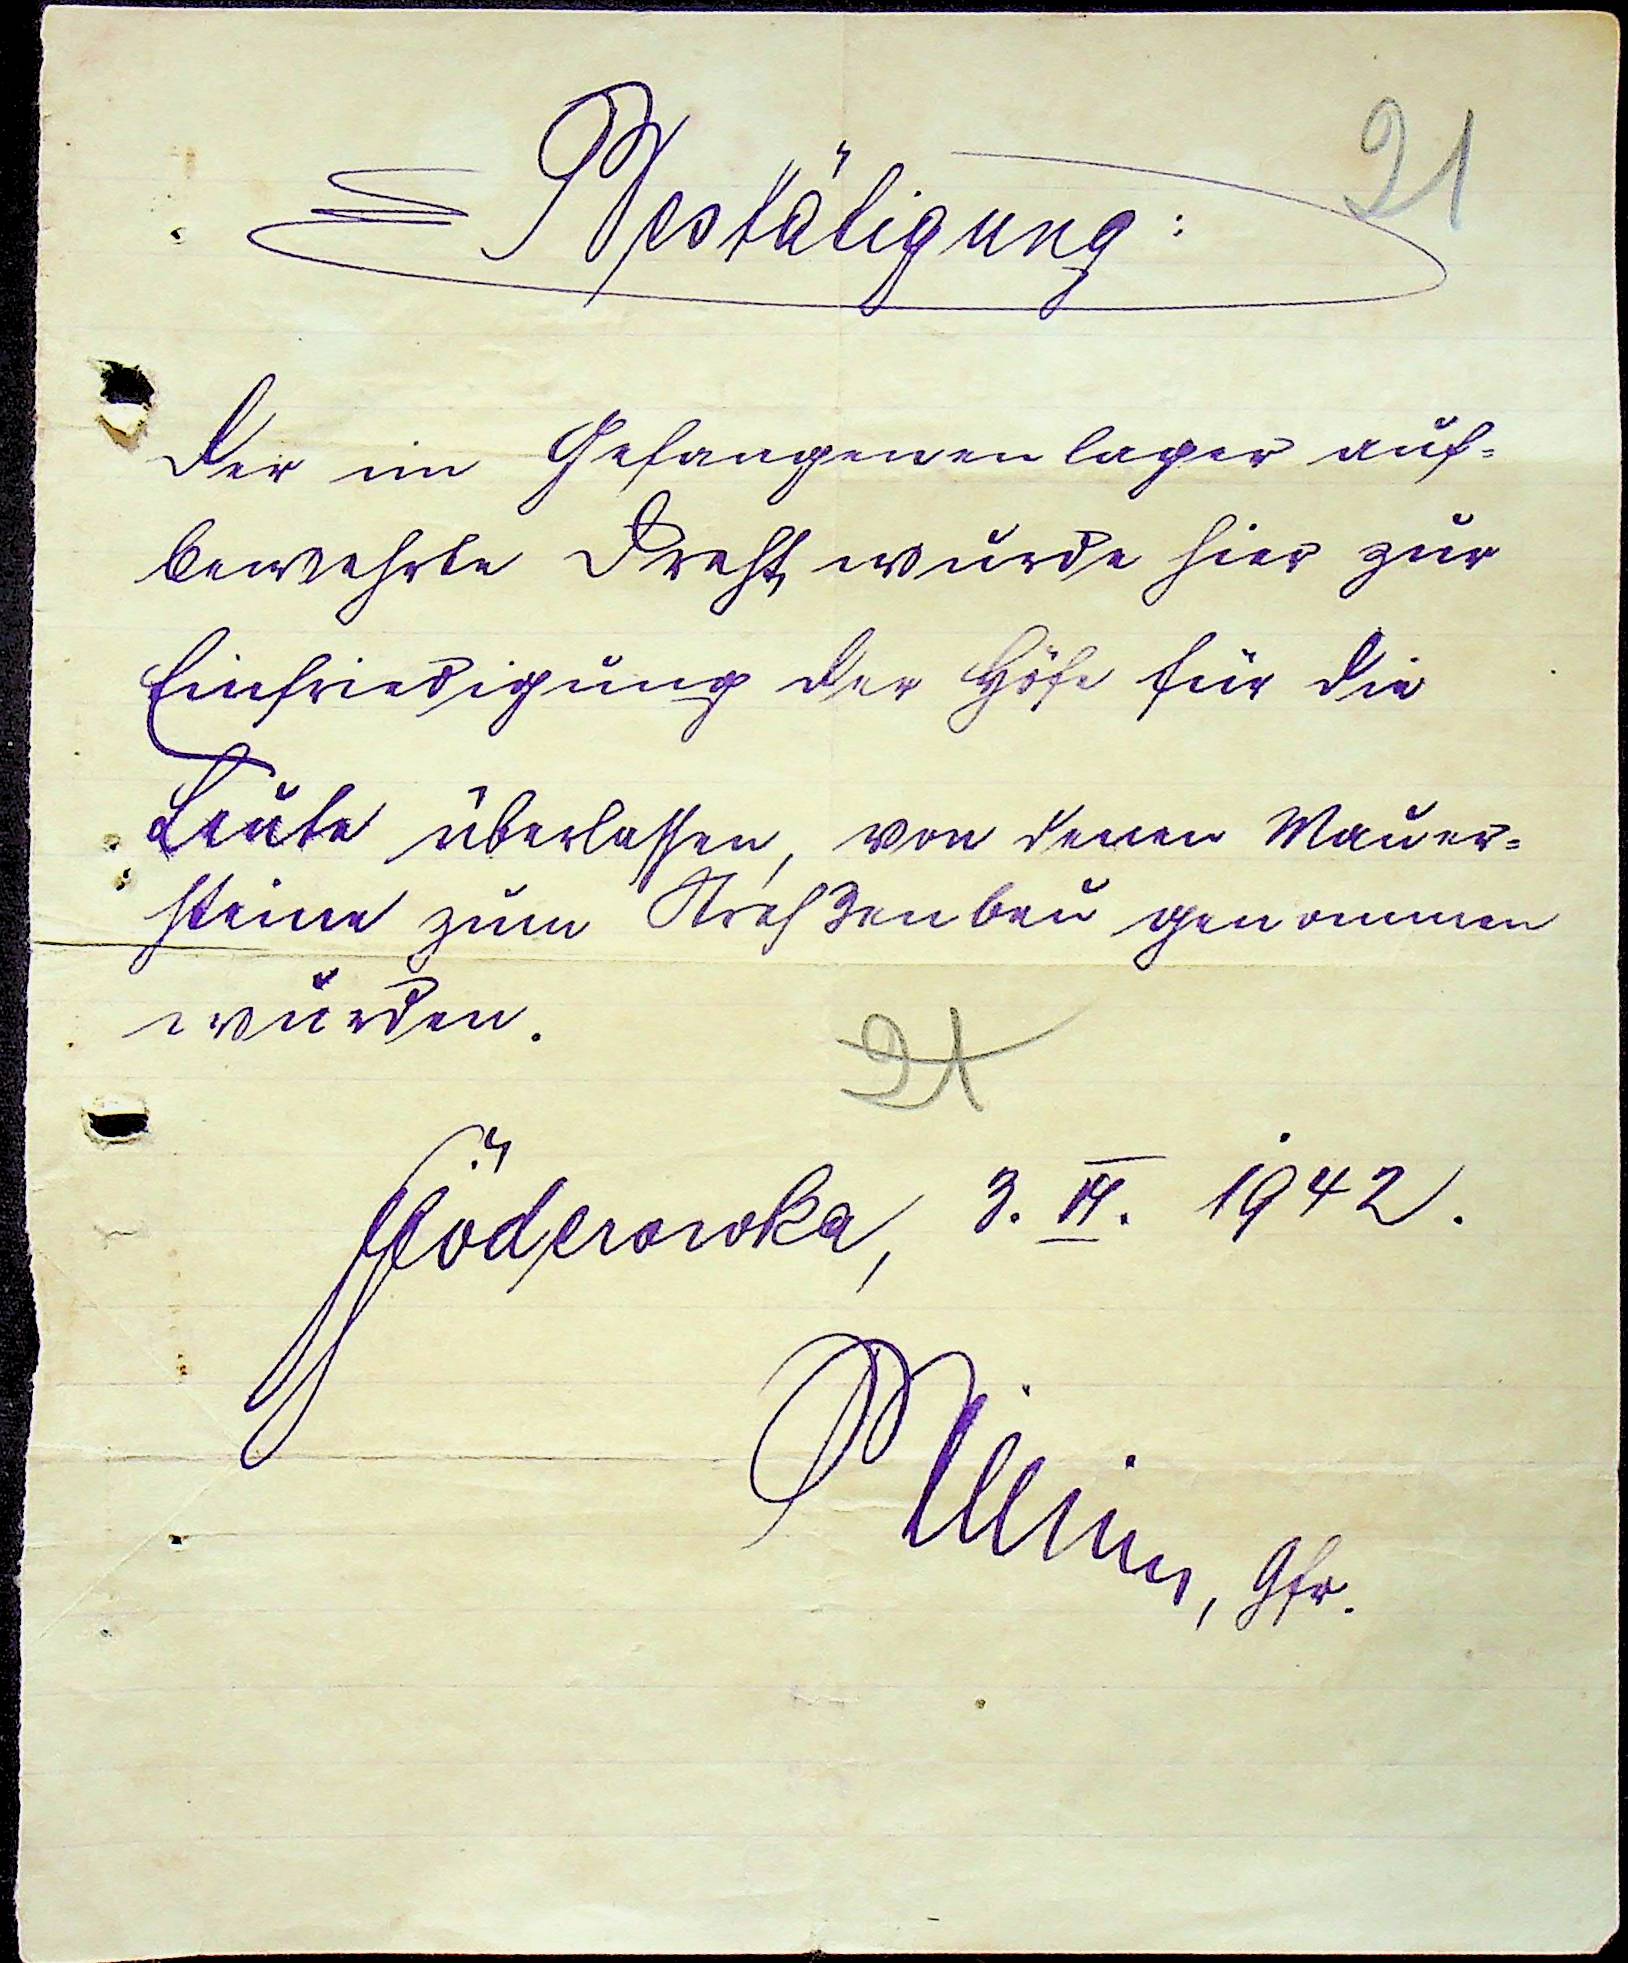 21
Bestätigung:
Der im Gefangenenlager auf=
bewahrte Draht wurde hier zur
Einfriedigung der Höfe für die
Leute überlassen, von denen Mauer=
steine zum Straßenbau genommen
wurden.
21
Födcrowka, 3. 1942.
Gfr.